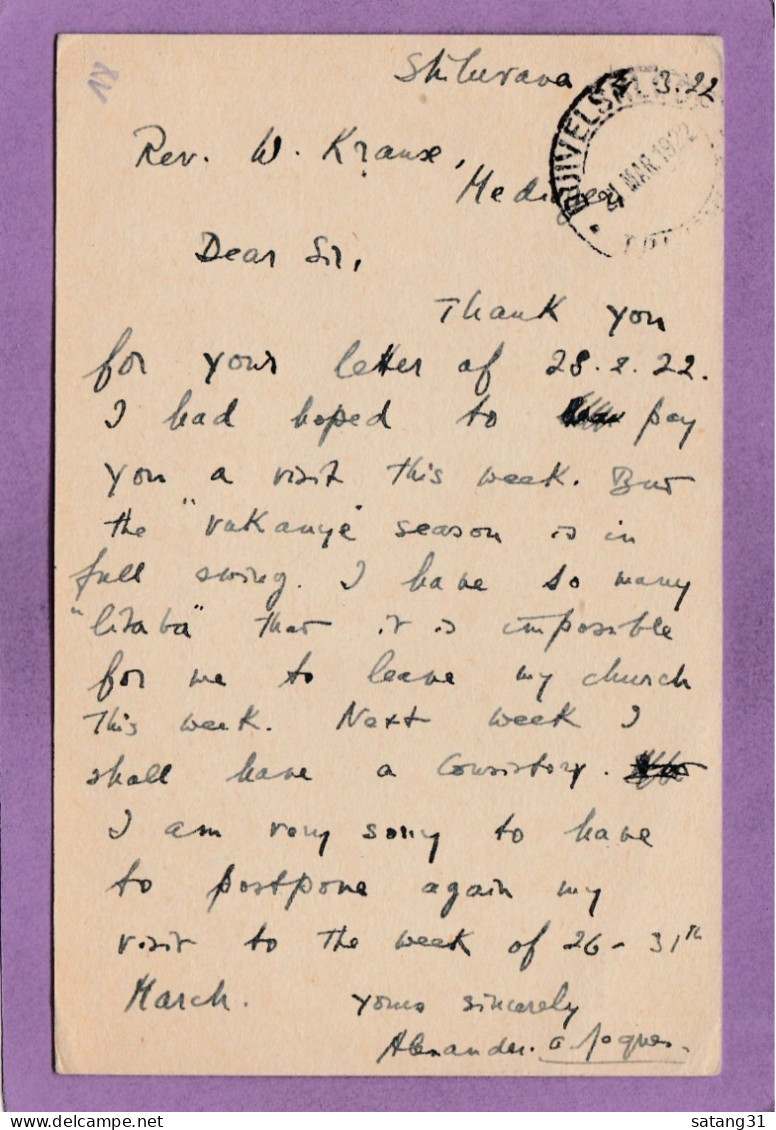 18
Shiluvana 3.22
DUIVELSKLOOF
21 MAR 1922
Rev. W. Krause,
Medingen
Dear Sir,
Thank you
for your letter of 28.2.22.
I had hoped to pay
you a visit this week. But
the "vukanye" season is in
full swing. I have so many
"litaba" that it is impossible
for me to leave my church
this week. Next week I
shall have a Consistory.
I am very sorry to have
to postpone again my
visit to the week of 26 - 31th
March. yours sincerely
Alexander. a Jaques.
satang31